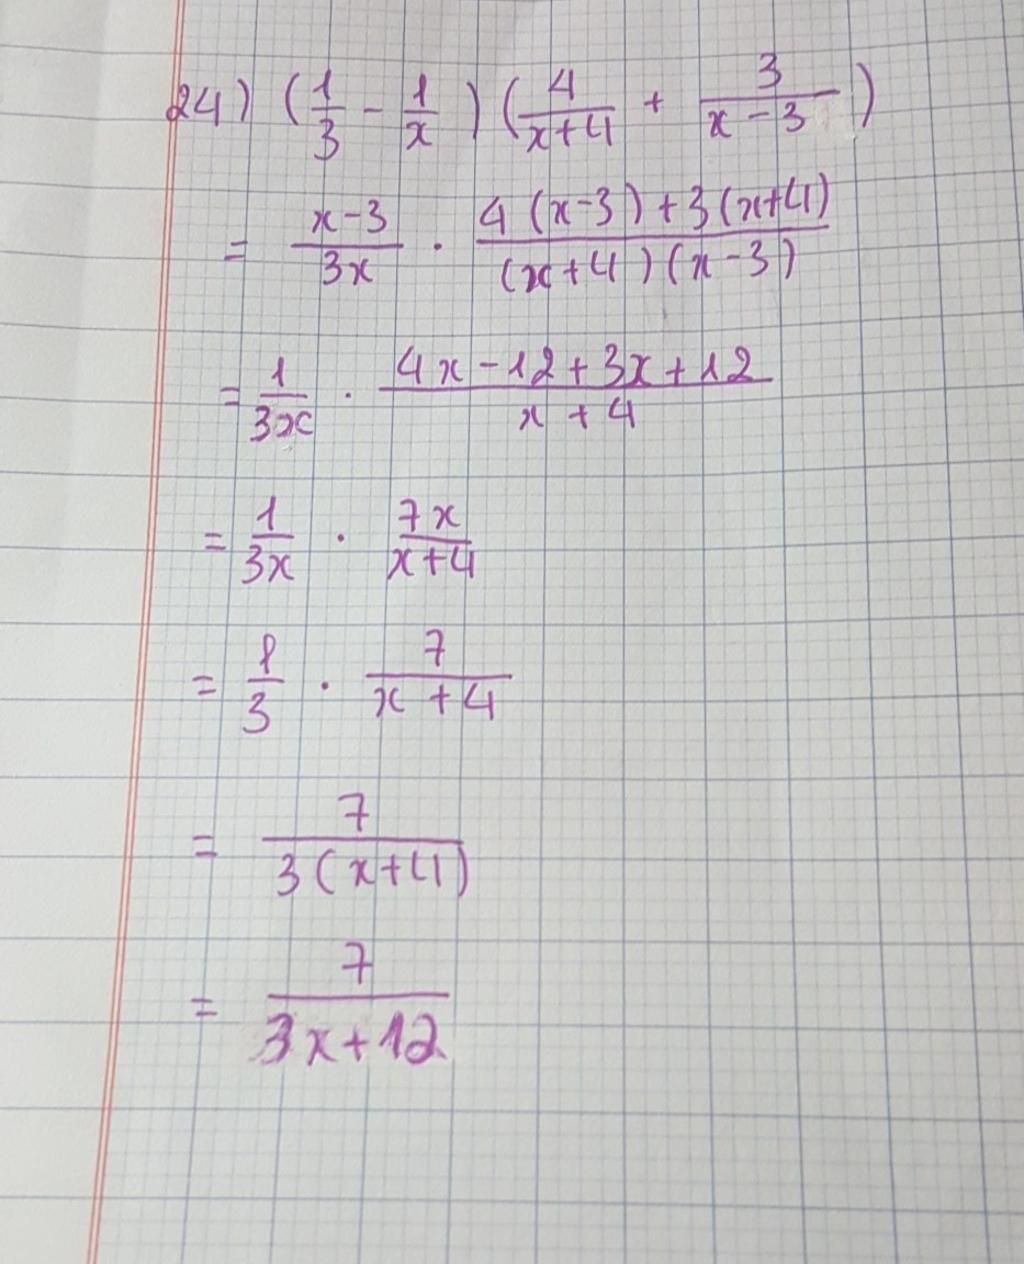 24) (1/3 - 1/x) (4/(x+4) + 3/(x-3))
= (x-3)/(3x) · (4(x-3)+3(x+4))/((x+4)(x-3))
= 1/(3x) · (4x-12+3x+12)/(x+4)
= 1/(3x) · (7x)/(x+4)
= 1/3 · 7/(x+4)
= 7/(3(x+4))
= 7/(3x+12)